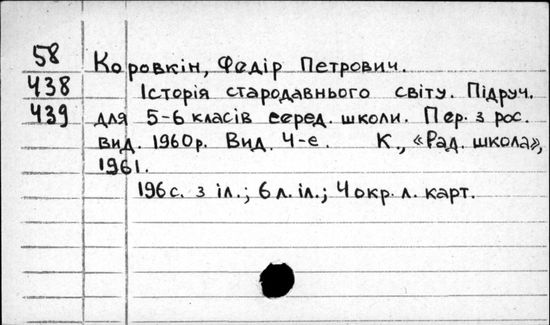 58
438
439
Коровкін, Федір Петрович.
Історія стародавнього світу. Підруч.
для 5-6 класів серед. школи. Пер. з рос.
вид. 1960р. Вид. 4-е. К., «Рад. школа»,
1961.
196 с. з іл.; 6 л. іл.; 4 окр. л. карт.